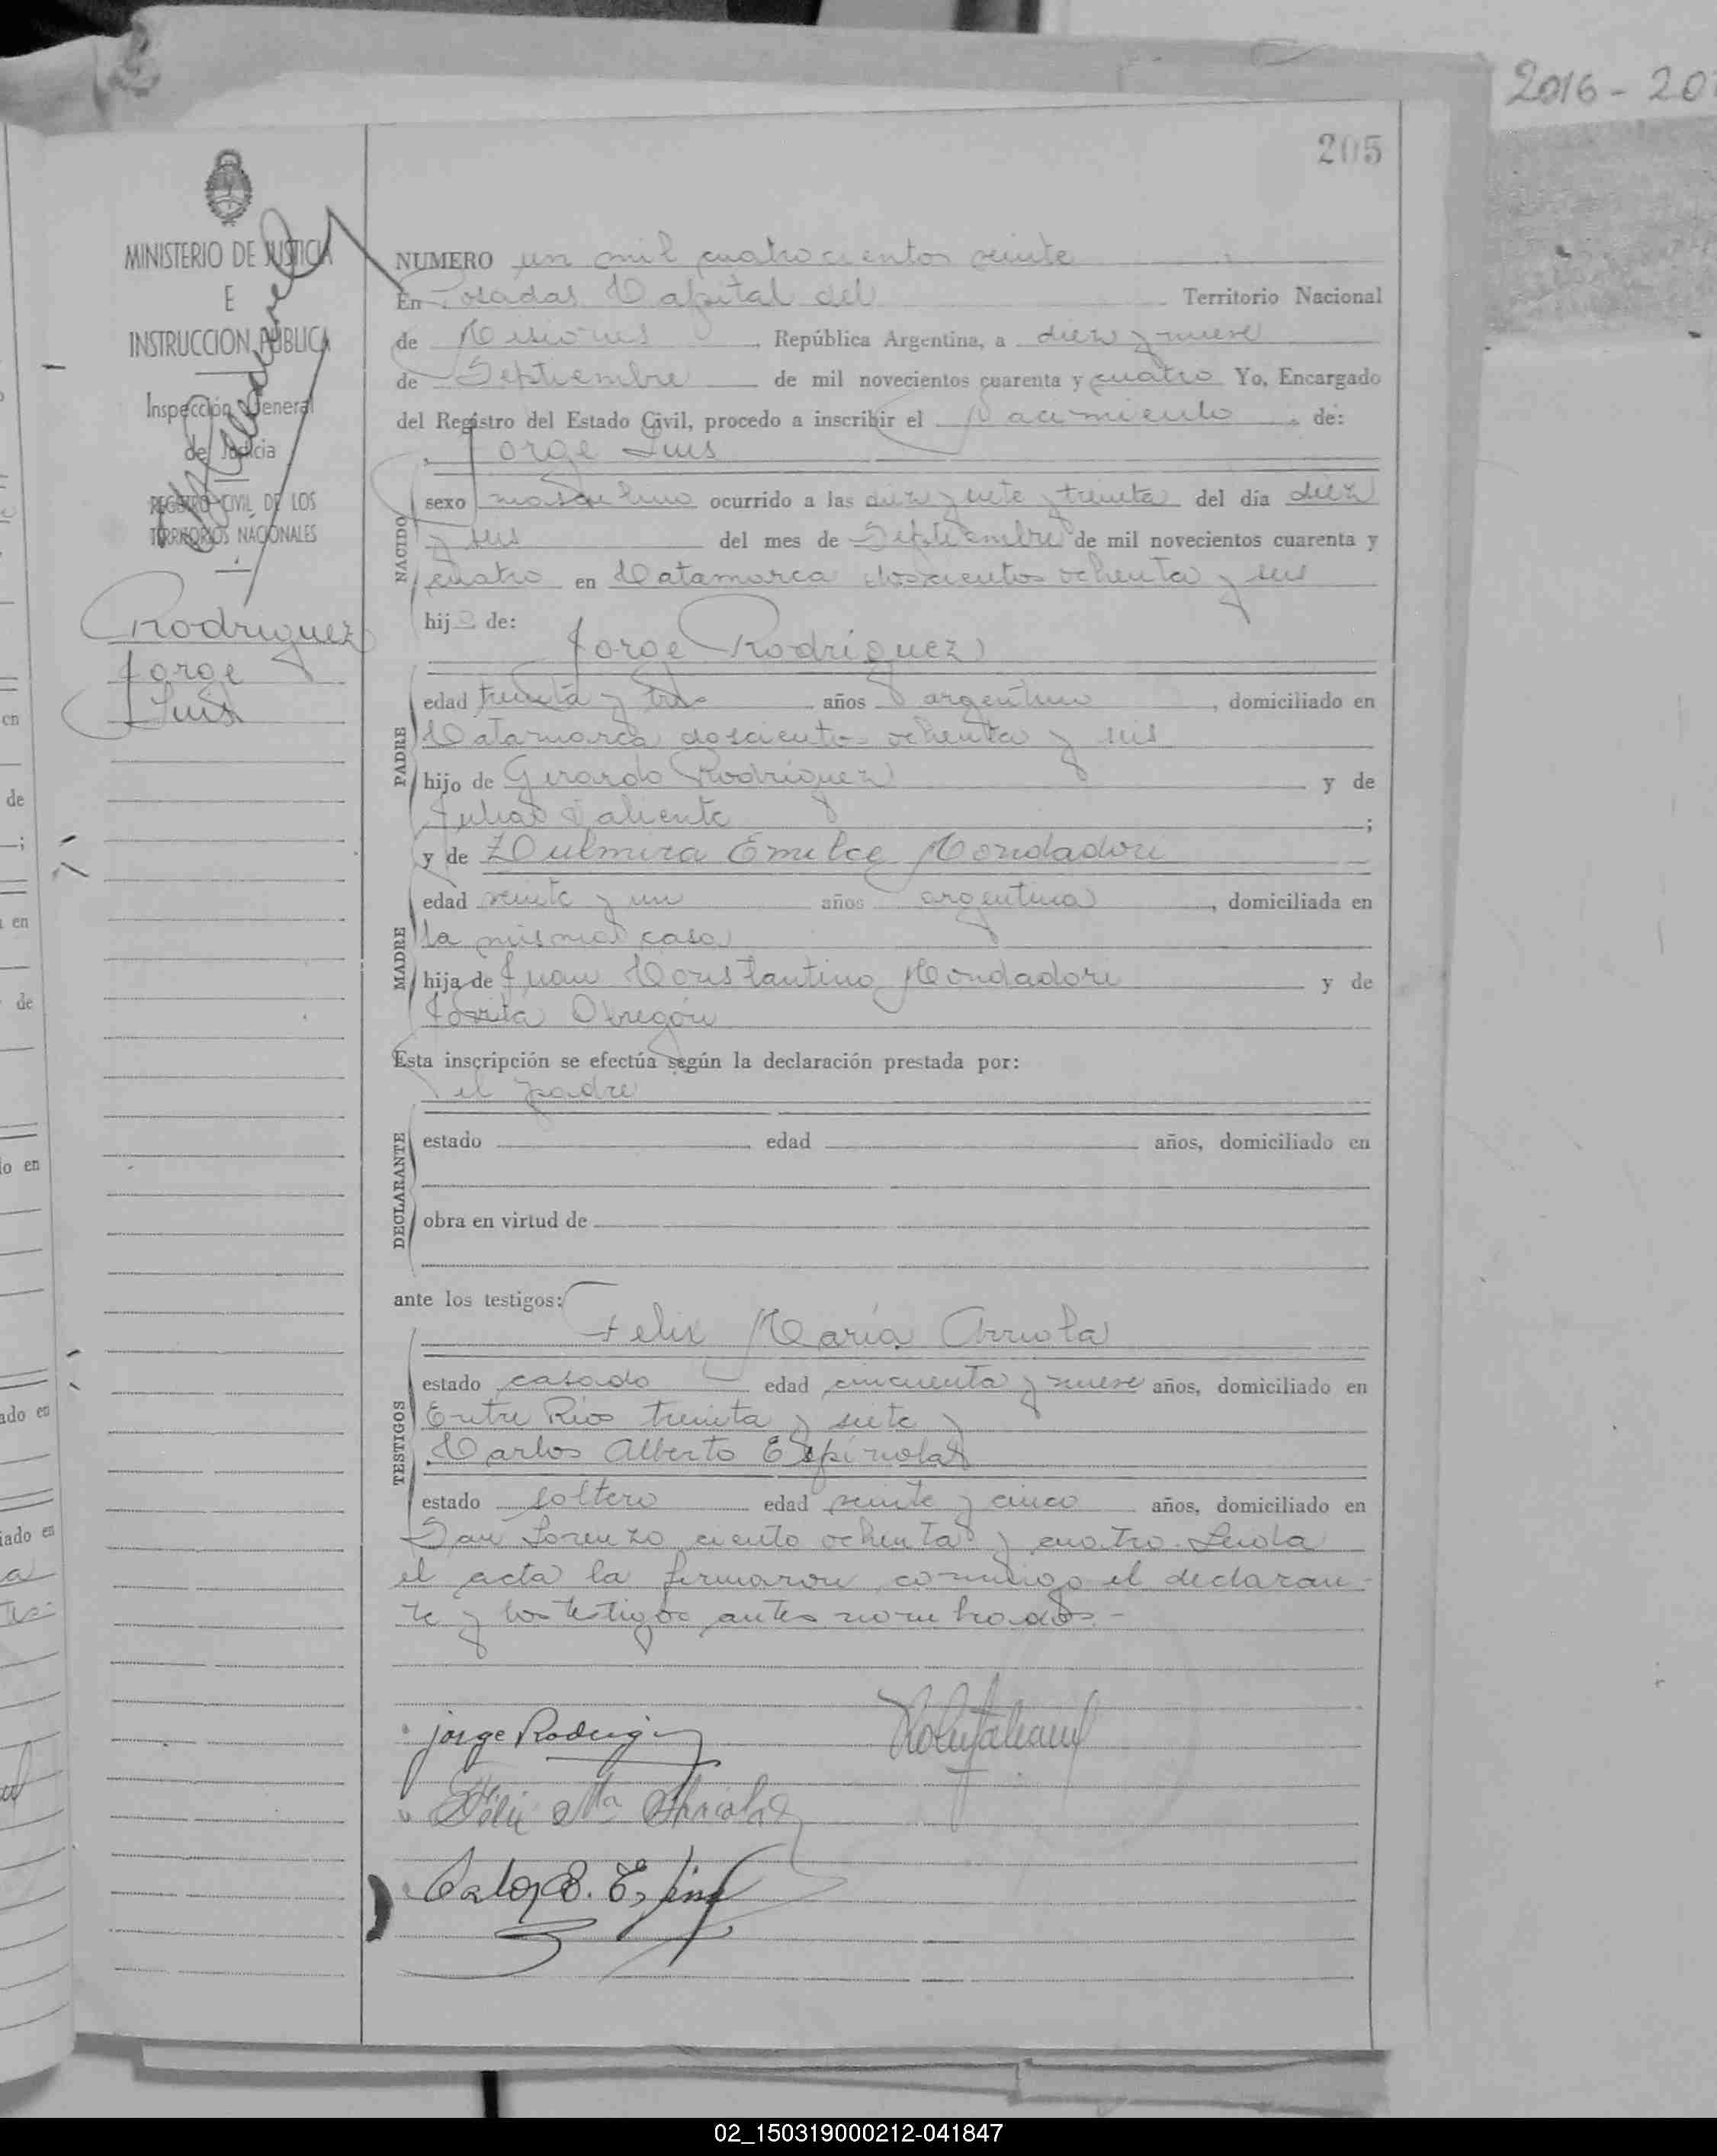 2016 - 20
205
MINISTERIO DE JUSTICIA
E
INSTRUCCION PUBLICA
Inspección General
de Justicia
REGISTRO CIVIL DE LOS
TERRITORIOS NACIONALES
Rodriguez
Jorge
Luis
NUMERO un mil cuatrocientos veinte
En Posadas Capital del Territorio Nacional
de Misiones, República Argentina, a diez y nueve
de Septiembre de mil novecientos cuarenta y cuatro Yo, Encargado
del Registro del Estado Civil, procedo a inscribir el Nacimiento, de:
Jorge Luis
NACIDO
sexo masculino ocurrido a las diez y siete y treinta del día diez
y seis del mes de Septiembre de mil novecientos cuarenta y
cuatro en Catamarca doscientos ochenta y seis
hijo de:
Jorge Rodriguez
PADRE
edad treinta y tres años argentino, domiciliado en
Catamarca doscientos ochenta y seis
hijo de Gerardo Rodriguez y de
Julia Valiente;
y de Dulmira Emilce Mondadori
MADRE
edad veinte y un años argentina, domiciliada en
la misma casa
hija de Juan Constantino Mondadori y de
Jovita Obregón
Esta inscripción se efectúa según la declaración prestada por:
el padre
DECLARANTE
estado edad años, domiciliado en
obra en virtud de
ante los testigos:
Felix María Arriola
TESTIGOS
estado casado edad cincuenta y nueve años, domiciliado en
Entre Rios treinta y siete y
Carlos Alberto Espínola
estado soltero edad veinte y cinco años, domiciliado en
San Lorenzo ciento ochenta y cuatro. Leida
el acta la firmaron conmigo el declaran-
te y los testigos antes nombrados.-
jorge Rodrigu
Félix Ma Arriola
Carlos A. Espino
02_150319000212-041847